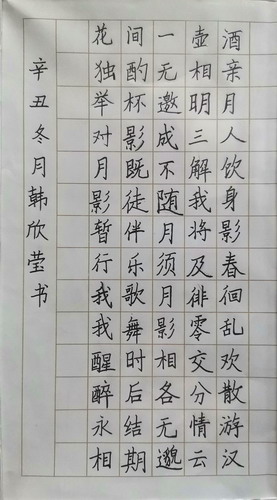 花间一壶酒
独酌无相亲
举杯邀明月
对影成三人
月既不解饮
影徒随我身
暂伴月将影
行乐须及春
我歌月徘徊
我舞影零乱
醒时相交欢
醉后各分散
永结无情游
相期邈云汉
辛丑冬月韩欣莹书